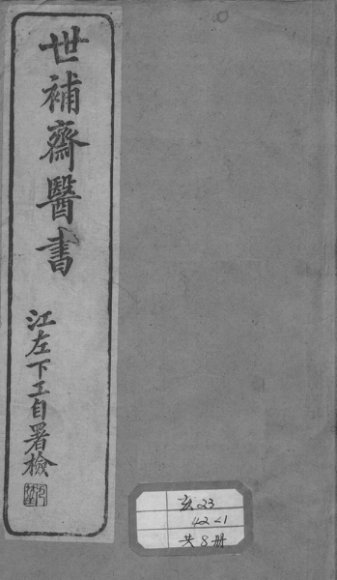 世補齋醫書
江左下工自署檢
23
42<1
共8册